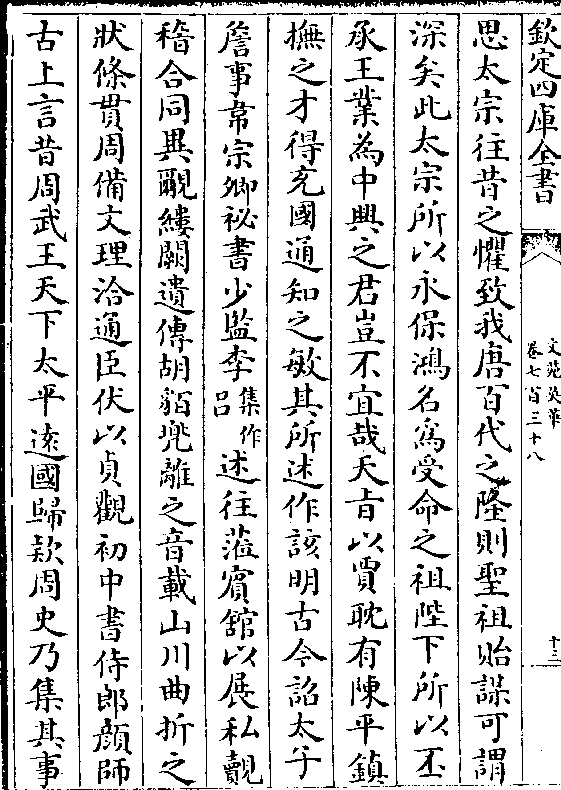 欽定四庫全書
文苑英華
卷七百三十八
十三
思太宗往昔之懼致我唐百代之隆則聖祖貽謀可謂
深矣此太宗所以永保鴻名為受命之祖陛下所以丕
承王業為中興之君豈不宜哉天㫖以賈耽有陳平鎮
撫之才得充國通知之敏其所述作該明古今詔太子
詹事韋宗卿祕書少監李吕集作述往蒞賓館以展私覿
稽合同異覼縷闕遺傳胡貊兠離之音載山川曲折之
狀條貫周備文理洽通臣伏以貞觀初中書侍郎顏師
古上言昔周武王天下太平逺國歸欵周史乃集其事